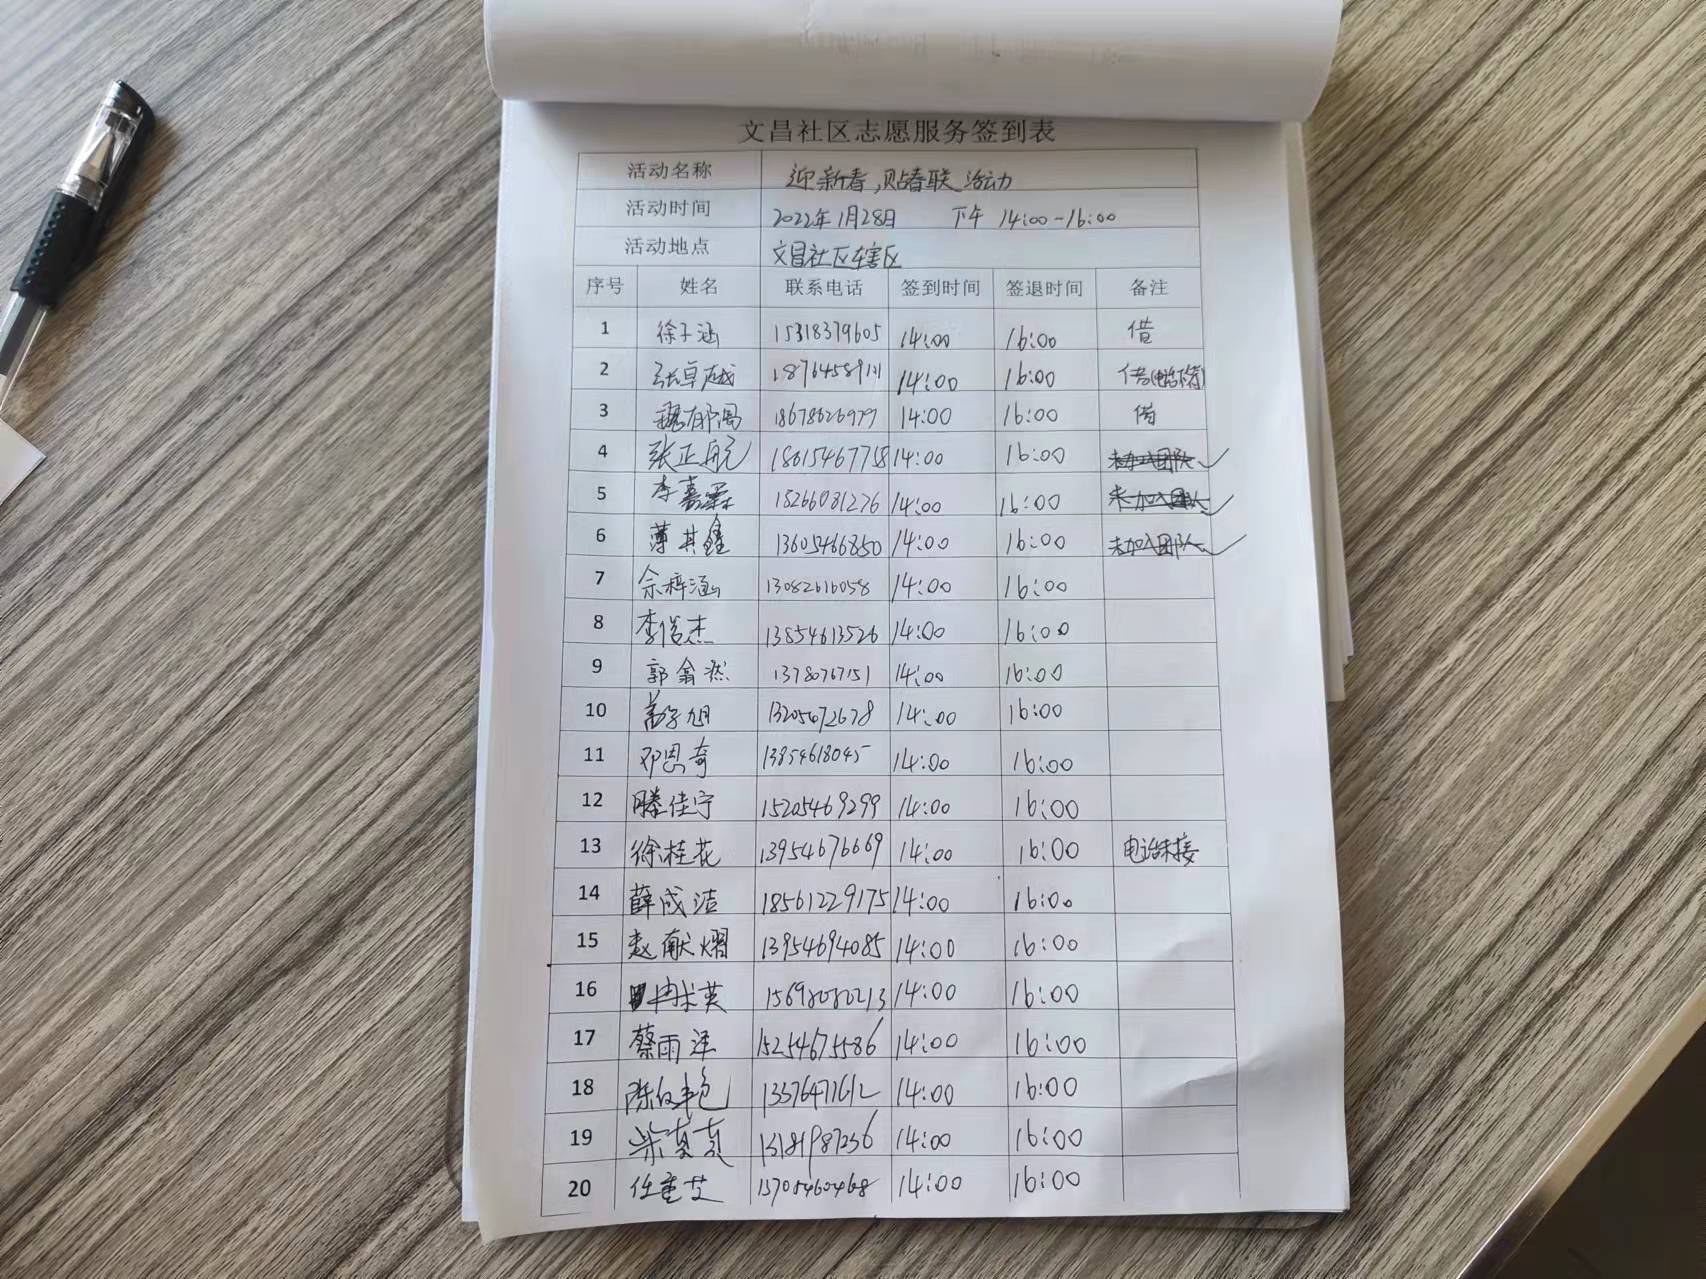 文昌社区志愿服务签到表
活动名称 迎新春,贴春联活动
活动时间 2022年1月28日 下午 14:00-16:00
活动地点 文昌社区辖区
序号 姓名 联系电话 签到时间 签退时间 备注
1 徐子涵 15318379605 14:00 16:00 借
2 张卓越 18764589111 14:00 16:00
3 18678626977 14:00 16:00 借
4 张正航 18615467758 14:00 16:00 未加入团队
5 李嘉霖 15266081276 14:00 16:00 未加入团队
6 薄其鑫 13605466850 14:00 16:00 未加入团队
7 佘梓涵 13082616058 14:00 16:00
8 李俊杰 13854613526 14:00 16:00
9 郭翕然 1378767151 14:00 16:00
10 旭 13205472678 14:00 16:00
11 邓恩奇 13854618045 14:00 16:00
12 滕佳宁 15205469299 14:00 16:00
13 徐桂花 13954676669 14:00 16:00 电话未接
14 薛成洁 18561229175 14:00 16:00
15 赵献熠 13954694085 14:00 16:00
16 冉求英 15698080213 14:00 16:00
17 蔡雨泽 15254675586 14:00 16:00
18 14:00 16:00
19 13181987236 14:00 16:00
20 任重艾 13705460468 14:00 16:00